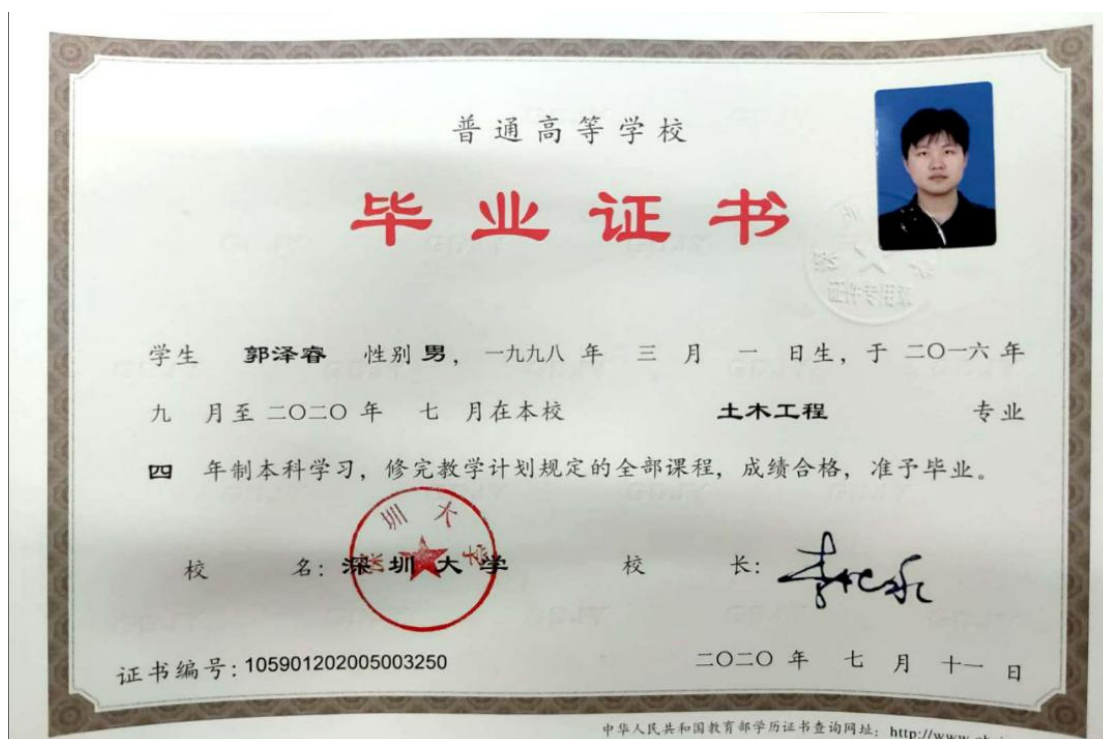 普通高等学校
毕业证书
学生 郭泽睿 性别 男, 一九九八 年 三 月 一 日生, 于 二〇一六 年
九 月至 二〇二〇 年 七 月在本校 土木工程 专业
四 年制本科学习, 修完教学计划规定的全部课程, 成绩合格, 准予毕业。
校 名: 深圳大学 校 长:
深圳大学
证书编号: 105901202005003250 二〇二〇 年 七 月 十一 日
中华人民共和国教育部学历证书查询网址: http://www